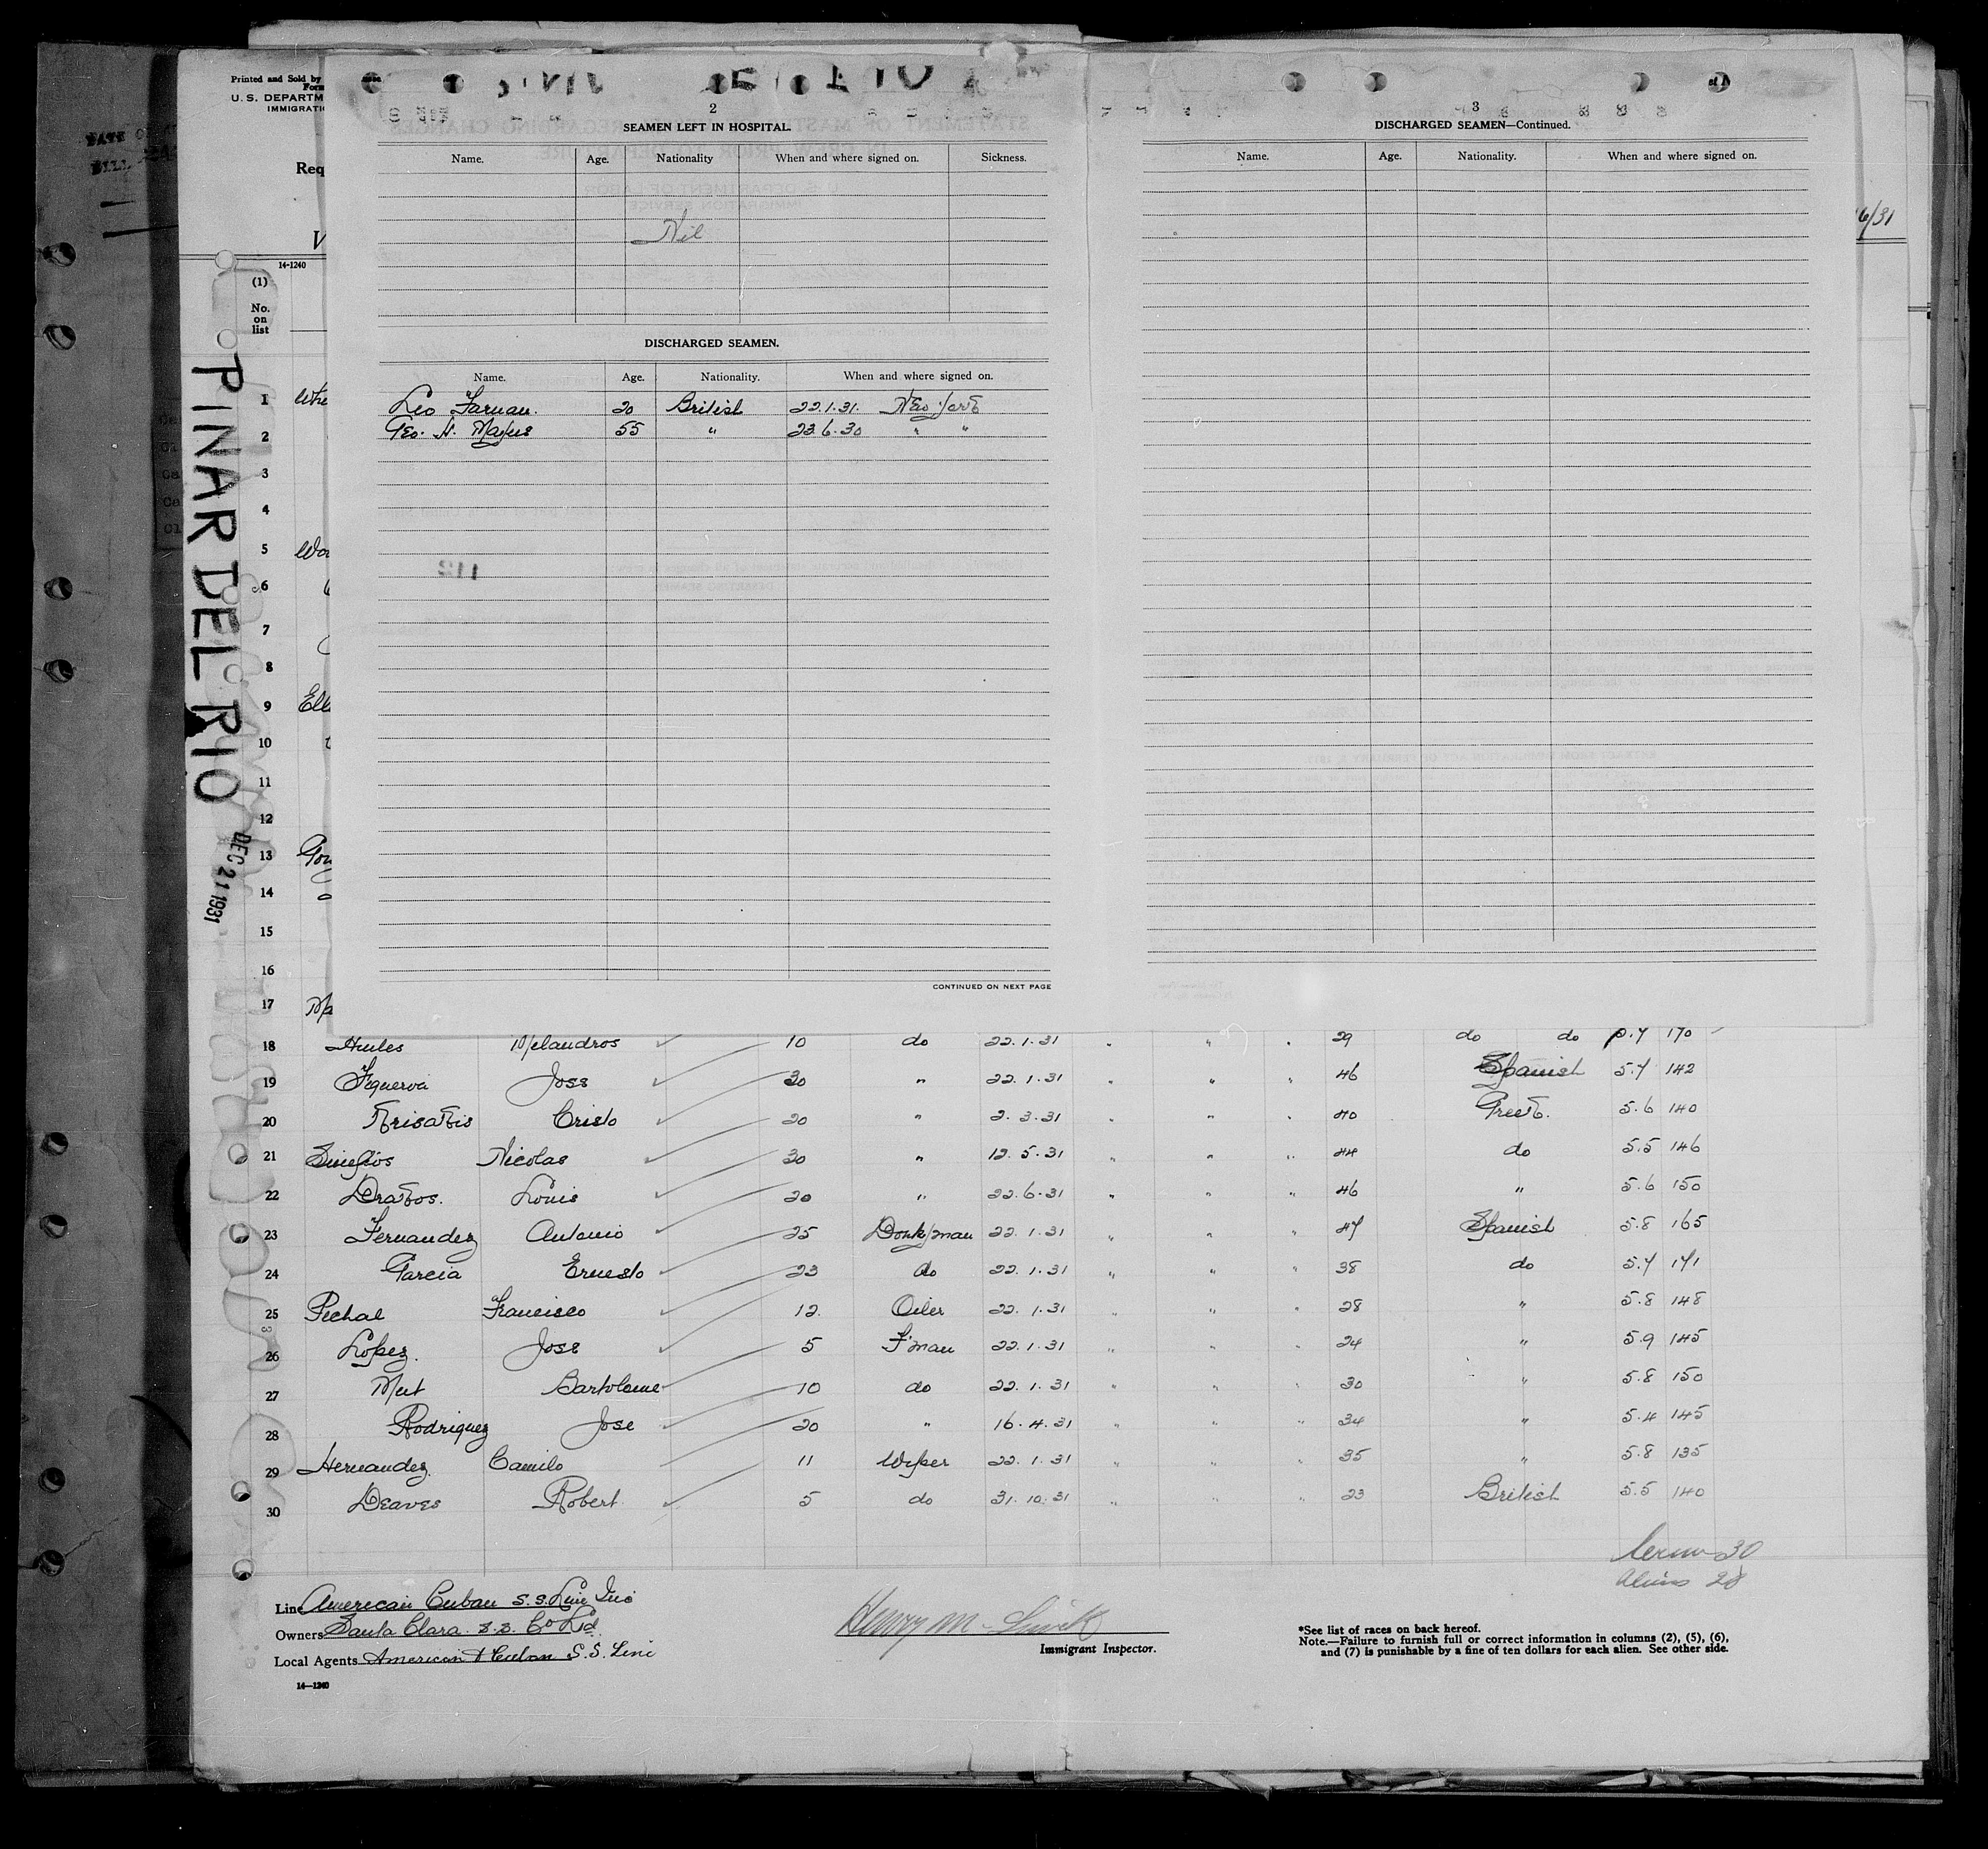 Printed and Sold by
Form
U. S. DEPARTM
IMMIGRATI
Req
14-1240
(1)
No.
on
list
PINAR DEL RIO
DEC 21 1931
6/31
2
SEAMEN LEFT IN HOSPITAL.
Name. Age. Nationality When and where signed on. Sickness.
Nil
DISCHARGED SEAMEN.
Name. Age. Nationality. When and where signed on.
Leo Farnan. 20 British 22.1.31. New York
Geo. H. Mayers 55 " 23.6.30 " "
112
CONTINUED ON NEXT PAGE
3
DISCHARGED SEAMEN—Continued.
Name. Age. Nationality. When and where signed on.
1
2
3
4
5
6
7
8
9
10
11
12
13
14
15
16
17
18 Melandros 10 do 22.1.31 " " " 29 do do 5.7 170
19 Figueroa Jose 30 " 22.1.31 " " " 46 Spanish 5.7 142
20 Krisakis Cristo 20 " 2.3.31 " " " 40 Greek. 5.6 140
21 Nicolas 30 " 12.5.31 " " " 44 do 5.5 146
22 Drakos. Louis 20 " 22.6.31 " " " 46 " 5.6 150
23 Fernandez Antonio 25 Donkyman 22.1.31 " " " 47 Spanish 5.8 165
24 Garcia Ernesto 23 do 22.1.31 " " " 38 do 5.7 171
25 Pechal Francisco 12. Oiler 22.1.31 " " " 28 " 5.8 148
26 Lopez. Jose 5 F'man 22.1.31 " " " 24 " 5.9 145
27 Mut Bartolome 10 do 22.1.31 " " " 30 " 5.8 150
28 Rodriguez Jose 20 " 16.4.31 " " " 34 " 5.4 145
29 Hernandez. Camilo 11 Wiper 22.1.31 " " " 35 " 5.8 135
30 Deaves Robert 5 do 31.10.31 " " " 23 British 5.5 140
30
Aliens 28
Line American Cuban S.S. Line Inc
Owners Santa Clara S.S. Co Ltd.
Local Agents American & Cuban S.S. Line
14—1240
Henry M.
Immigrant Inspector.
*See list of races on back hereof.
Note.—Failure to furnish full or correct information in columns (2), (5), (6),
and (7) is punishable by a fine of ten dollars for each alien. See other side.